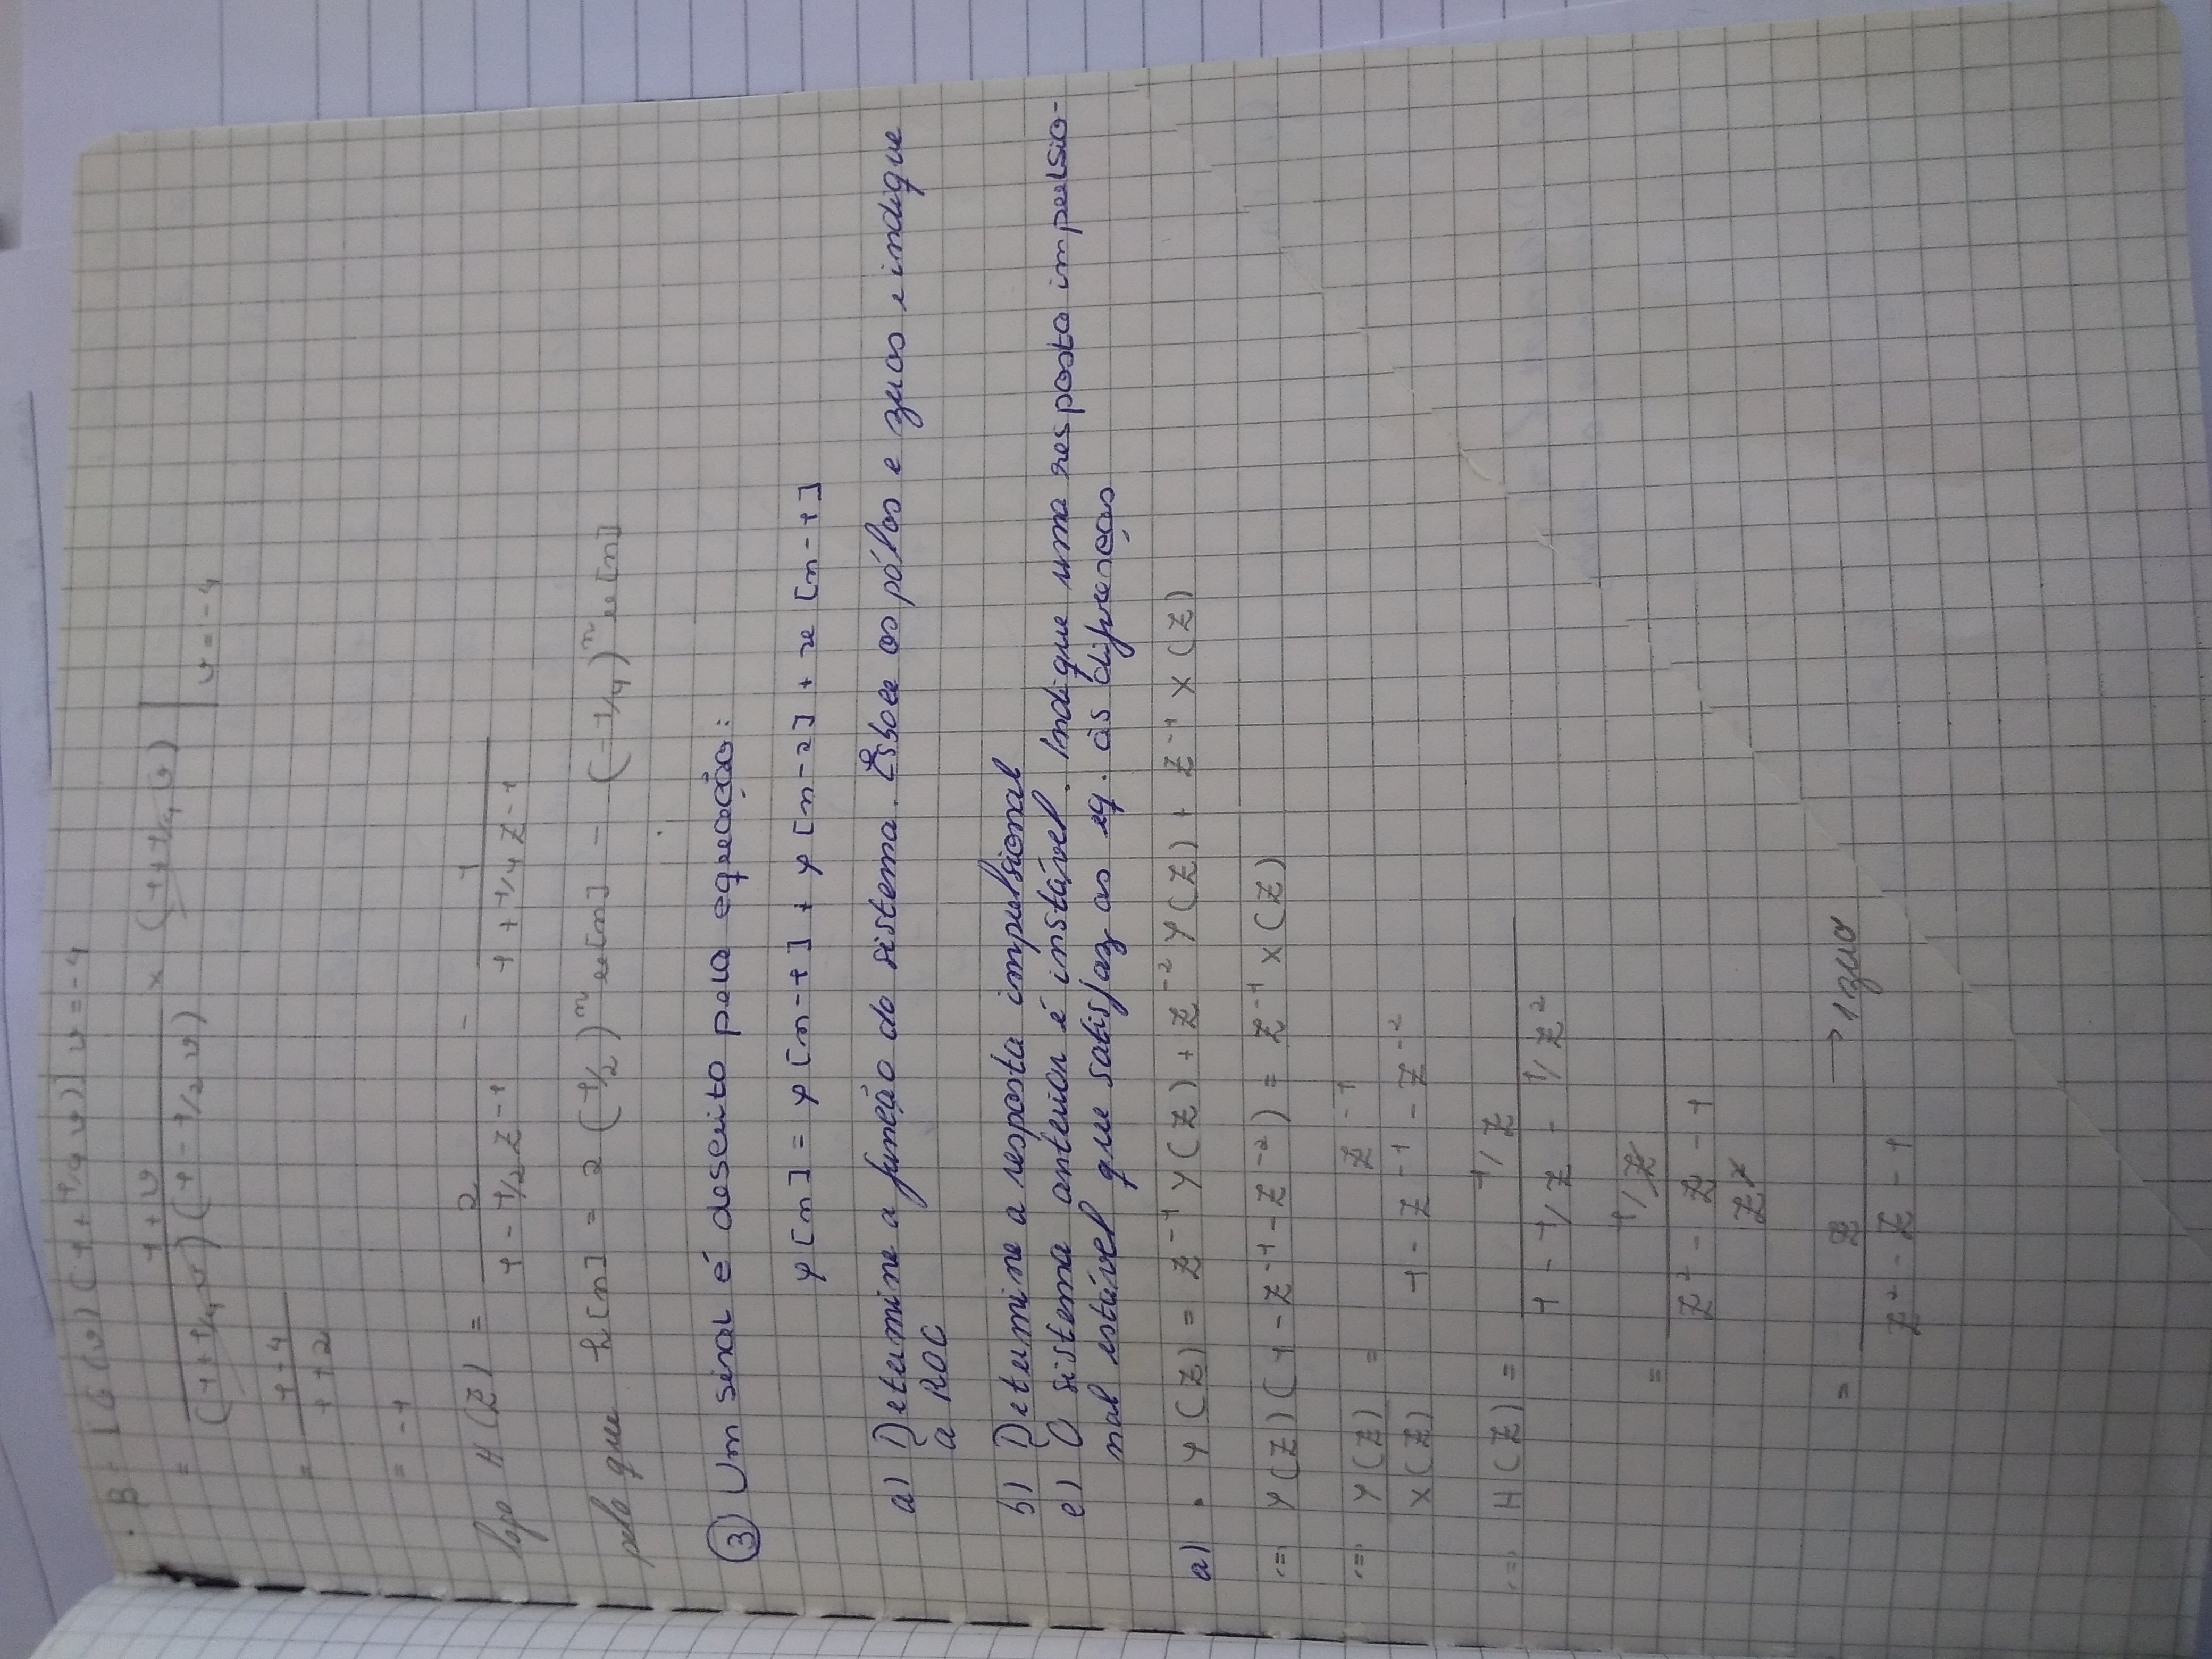 · B = [G(v)(1 + 1/4 v)] v = -4
= 1 + v / (1 + 1/4 v)(1 - 1/2 v) × (1 + 1/4 v) | v = -4
= 1 - 4 / 1 + 2
= -1
logo H(Z) = 2 / 1 - 1/2 Z^-1 - 1 / 1 + 1/4 Z^-1
pelo que h[n] = 2 (1/2)^n u[n] - (-1/4)^n u[n]
③ Um sinal é descrito pela equação:
y[n] = y[n-1] + y[n-2] + x[n-1]
a) Determine a função do sistema. Esboce os pólos e zeros e indique
a ROC
b) Determine a resposta impulsional
c) O sistema anterior é instável. Indique uma resposta impulsio-
nal estável que satisfaz as eq. às diferenças
a) · Y(Z) = Z^-1 Y(Z) + Z^-2 Y(Z) + Z^-1 X(Z)
(=) Y(Z)(1 - Z^-1 - Z^-2) = Z^-1 X(Z)
(=) Y(Z) / X(Z) = Z^-1 / 1 - Z^-1 - Z^-2
(=) H(Z) = 1/Z / 1 - 1/Z - 1/Z^2
= 1/Z / Z^2 - Z - 1 / Z^2
= Z / Z^2 - Z - 1 → 1 zero